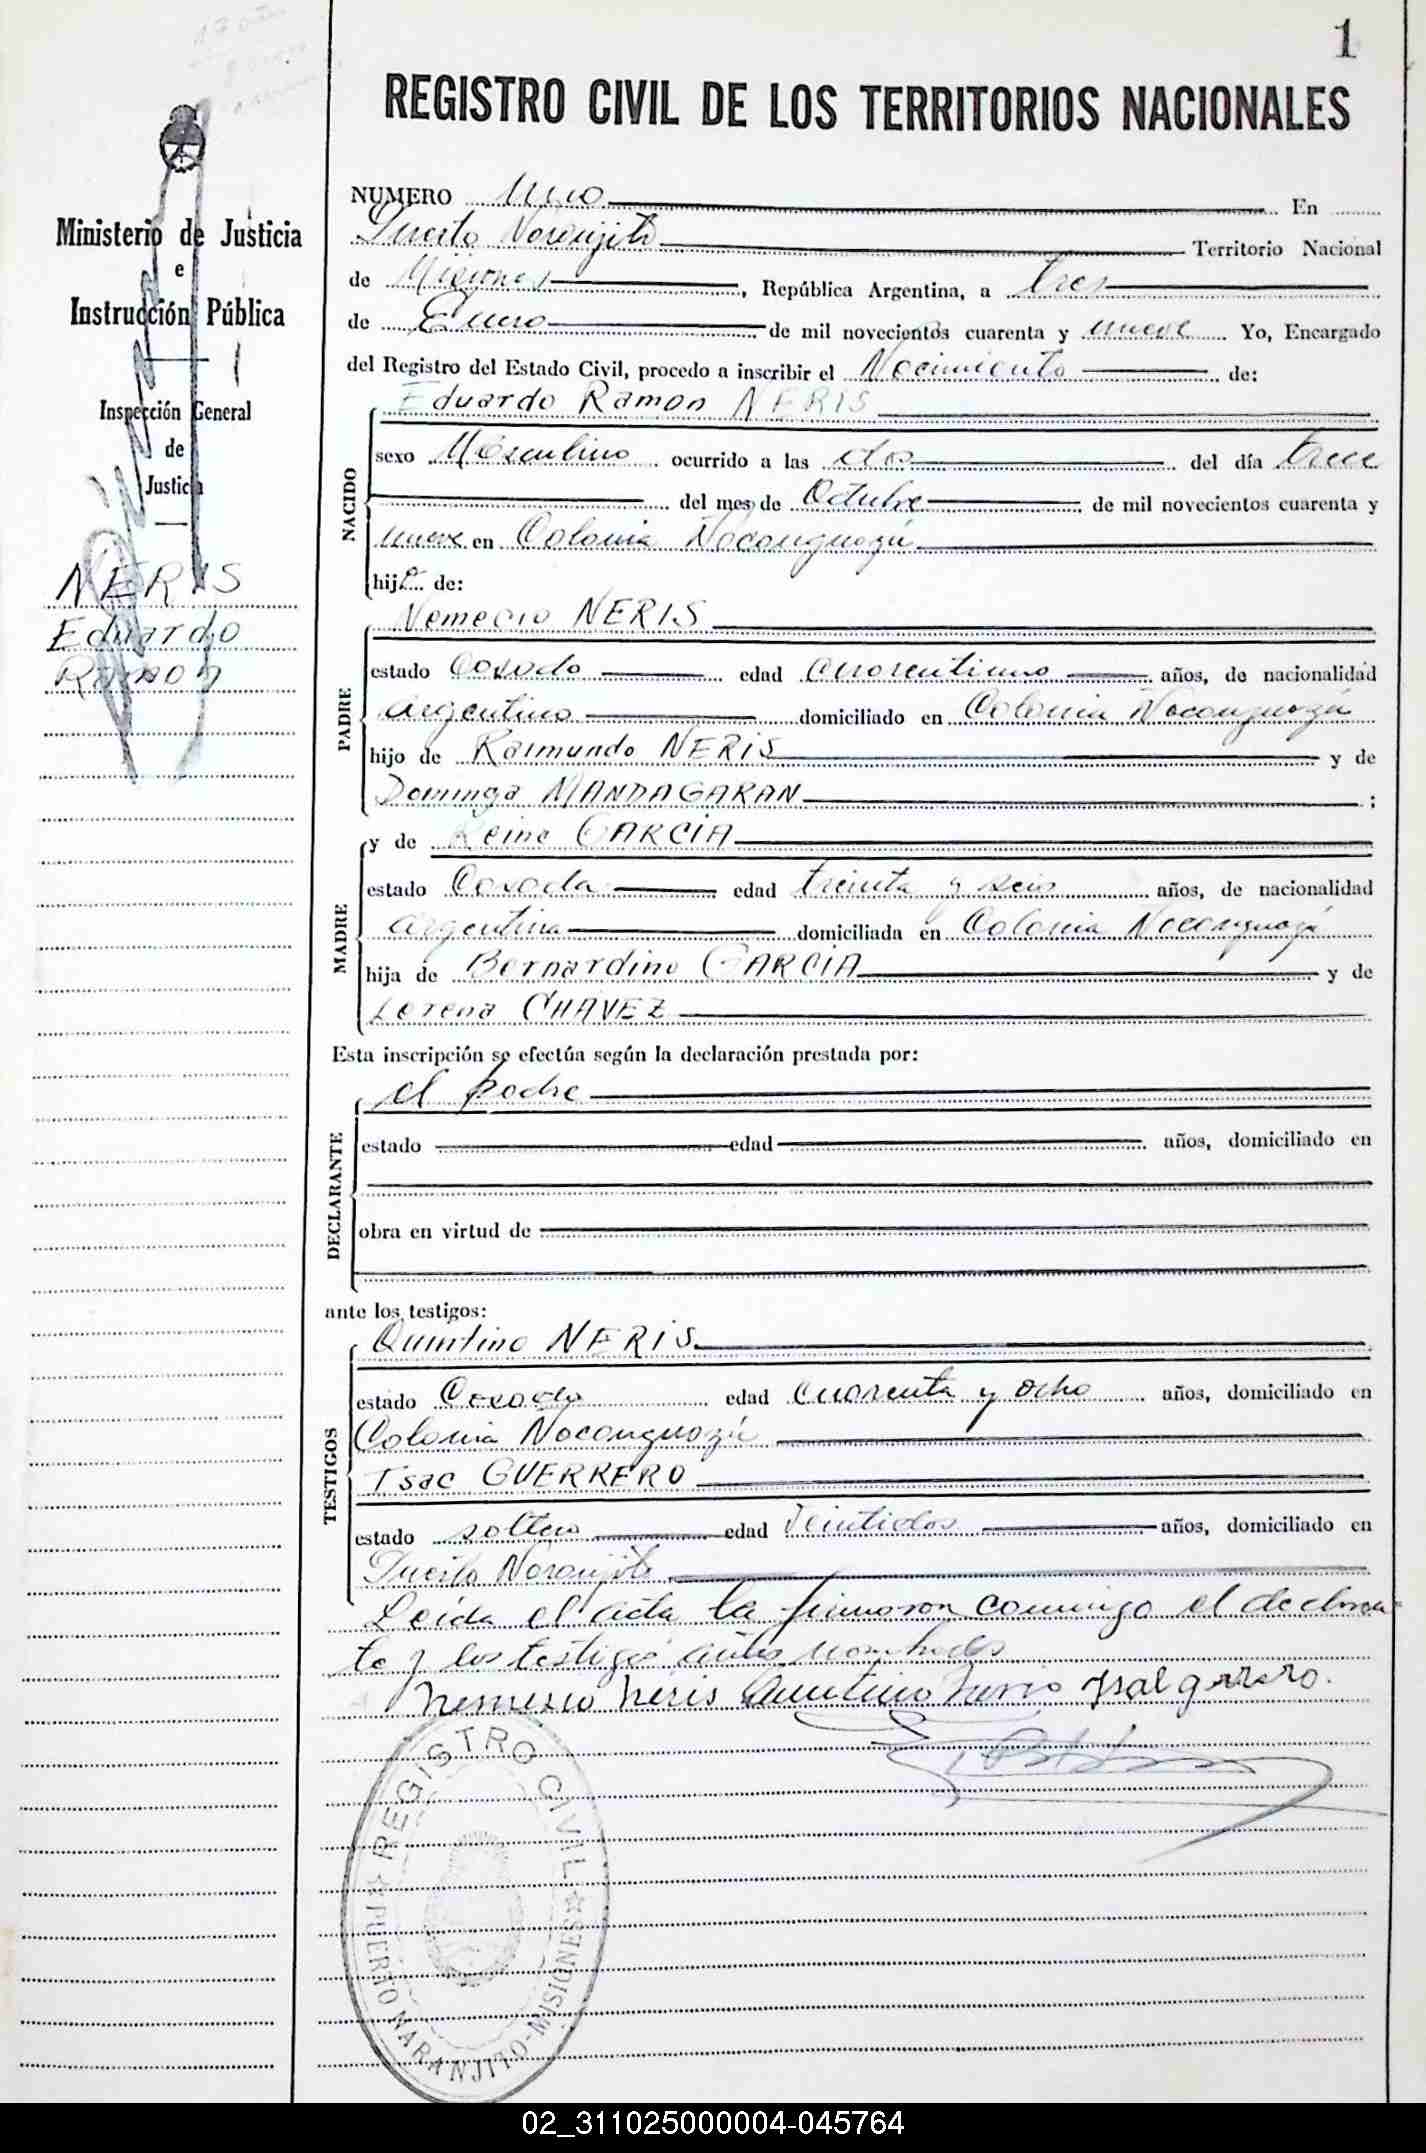 1
REGISTRO CIVIL DE LOS TERRITORIOS NACIONALES
Ministerio de Justicia
e
Instrucción Pública
1
Inspección General
de
Justicia
NERIS
Eduardo
Ramon
NUMERO Uno En
Puerto Naranjito Territorio Nacional
de Misiones, República Argentina, a tres
de Enero de mil novecientos cuarenta y nueve Yo, Encargado
del Registro del Estado Civil, procedo a inscribir el Nacimiento de:
NACIDO
Eduardo Ramon NERIS
sexo Masculino ocurrido a las dos del día trece
del mes de Octubre de mil novecientos cuarenta y
nueve en Colonia Ñacanguazú
hijo de:
PADRE
Nemecio NERIS
estado Casado edad cuarentiuno años, de nacionalidad
argentino domiciliado en Colonia Ñacanguazú
hijo de Raimundo NERIS y de
Dominga MANDAGARAN;
MADRE
y de GARCIA
estado Casada edad treinta y seis años, de nacionalidad
argentina domiciliada en Colonia Ñacanguazú
hija de Bernardino GARCIA y de
Lorena CHAVEZ
Esta inscripción se efectúa según la declaración prestada por:
DECLARANTE
el padre
estado edad años, domiciliado en
obra en virtud de
ante los testigos:
TESTIGOS
Quintino NERIS
estado Casado edad cuarenta y ocho años, domiciliado en
Colonia Ñacanguazú
Isac GUERRERO
estado soltero edad veintidos años, domiciliado en
Puerto Naranjito
Leída el acta la firmaron conmigo el declaran
te y los testigos antes nombrados
Nemesio Neris Quintino Neris
REGISTRO CIVIL
PUERTO NARANJITO-MISIONES
02_311025000004-045764